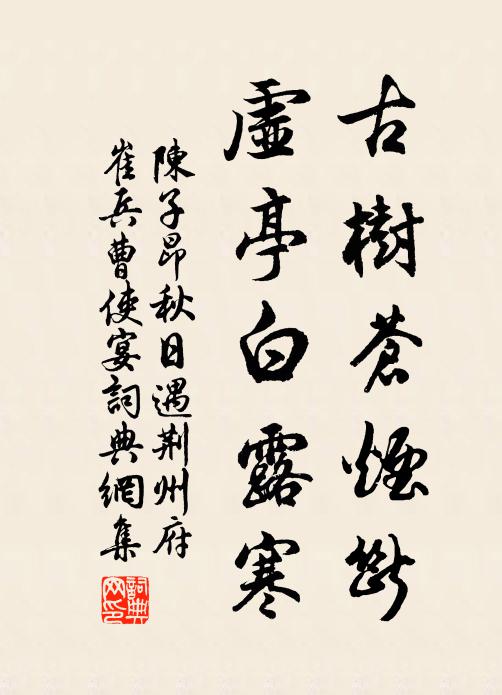 古樹蒼煙斷
虛亭白露寒
陳子昂秋日遇荊州府
崔兵曹使宴詞典網集
詞典网印